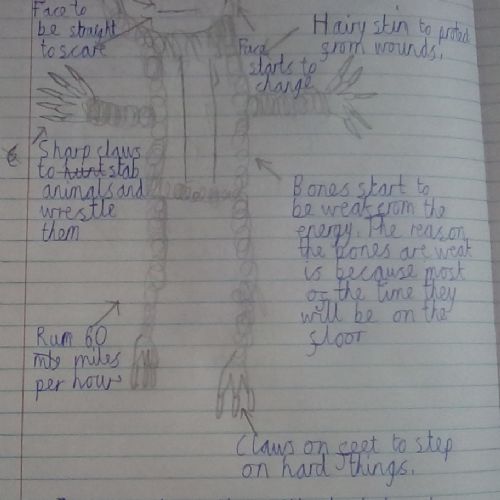 Face to
be straight
to scare
Hairy skin to protect
from wounds.
Face
starts to
change
Sharp claws
to hunt stab
animals and
wrestle
them
Bones start to
be weak from the
energy. The reason
the bones are weak
is because most
of the time they
will be on the
floor
Run 60
miles
per hour
Claws on feet to step
on hard things.